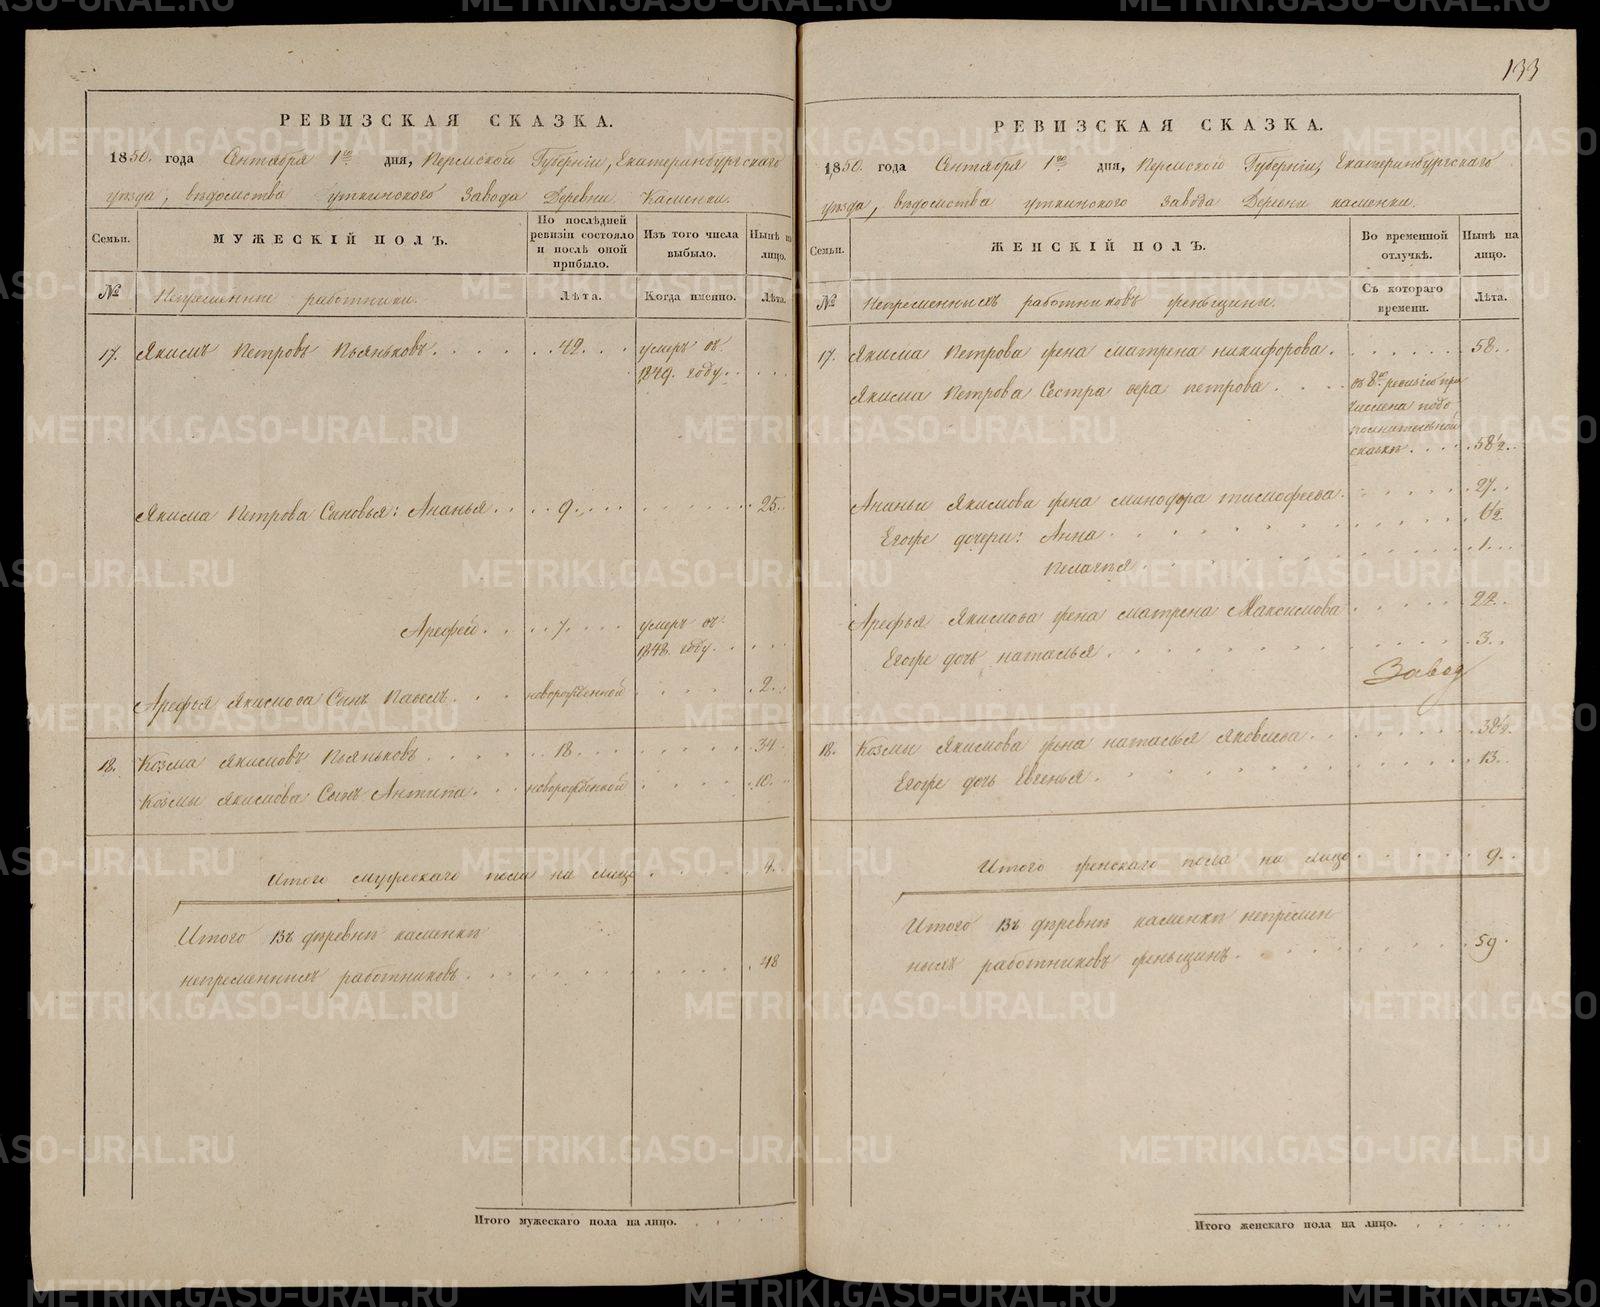 133
РЕВИЗСКАЯ СКАЗКА.
1850. года Сентября 1го дня, Пермской Губерніи, Екатеринбургскаго
уѣзда, вѣдомства уткинскаго Завода Деревни Каменки.
Семьи.
МУЖЕСКІЙ ПОЛЪ.
По послѣдней ревизіи состояло и послѣ оной прибыло.
Изъ того числа выбыло.
Нынѣ на лицо.
№
Непременные работники.
Лѣта.
Когда именно.
Лѣта.
17. Якимъ Петровъ Пьяньковъ. . . . . . 42. . . умеръ въ
1849. году. . . . .
Якима Петрова Сыновья: Ананья. . . . 9. . . . . . . . . . 25.
Арефей. . . . 7. . . . умеръ въ
1848. году. . . . .
Арефья Якимова Сынъ Павелъ. . . новорожденной . . . . . 2. .
18. Козма Якимовъ Пьяньковъ. . . . . . 18 . . . . . . 34.
Козмы Якимова Сынъ Антипа. . . новорожденной . . . . 10.
Итого мужескаго пола на лицо . . . . 4.
Итого Въ деревнѣ каменкѣ
непременныхъ работниковъ. . . . . . . . . . . 48
Итого мужескаго пола на лицо. . . . . .
РЕВИЗСКАЯ СКАЗКА.
1850. года Сентября 1го дня, Пермской Губерніи, Екатеринбургскаго
уѣзда, вѣдомства уткинскаго завода Деревни каменки.
Семьи.
ЖЕНСКІЙ ПОЛЪ.
Во временной отлучкѣ.
Нынѣ на лицо.
№
Непременныхъ работниковъ женщины.
Съ котораго времени.
Лѣта.
17. Якима Петрова жена матрена никифорова. . . . . . . . 58. .
Якима Петрова Сестра вера петрова. . . . въ 8ю ревизію при
числена подо
полнительной
сказкѣ. . . . . 58½. .
Ананьи Якимова жена минодора тимофеева. . . . . . . 27. .
Егоже дочери: Анна. . . . . . . . . . . 6½
пелагея. . . . . . . . . . . 1. . .
Арефья Якимова жена матрена Максимова . . . . . 22. .
Егоже дочь наталья. . . . . . . . . . 3. .
Завод
18. Козмы Якимова жена наталья Яковлева. . . . . . . . 32½.
Егоже дочь Евгенья. . . . . . . . . . 13.
Итого женскаго пола на лицо . . . . . . 9. .
Итого Въ деревнѣ каменкѣ непремен
ныхъ работниковъ женщинъ. . . . . . . . . 59.
Итого женскаго пола на лицо. . . . . .
METRIKI.GASO-URAL.RU